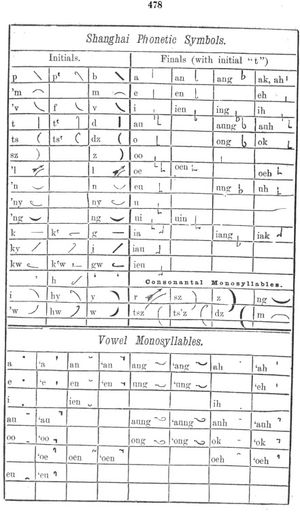 478
Shanghai Phonetic Symbols.
Initials. Finals (with initial "t")
p pt b a an ang ak, ah
'm m e en eh
'v f v i ien ing ih
t tt d au aung auh
ts tst dz o ong ok
sz z oo
'l l oe oen oeh
'n n eu ung uh
'ny ny u
'ng ng ui uin
k kt g ia iang iak
ky j iau
kw ktw gw ieu
h Consonantal Monosyllables.
i hy y r sz z ng
'w hw w tsz ts'z dz m
Vowel Monosyllables.
a 'a an 'an ang 'ang ah 'ah
e 'e en 'en ung 'ung 'eh
i ien ih
au 'au aung 'aung auh 'auh
oo 'oo ong 'ong ok 'ok
'oe oen 'oen oeh 'oeh
eu 'eu